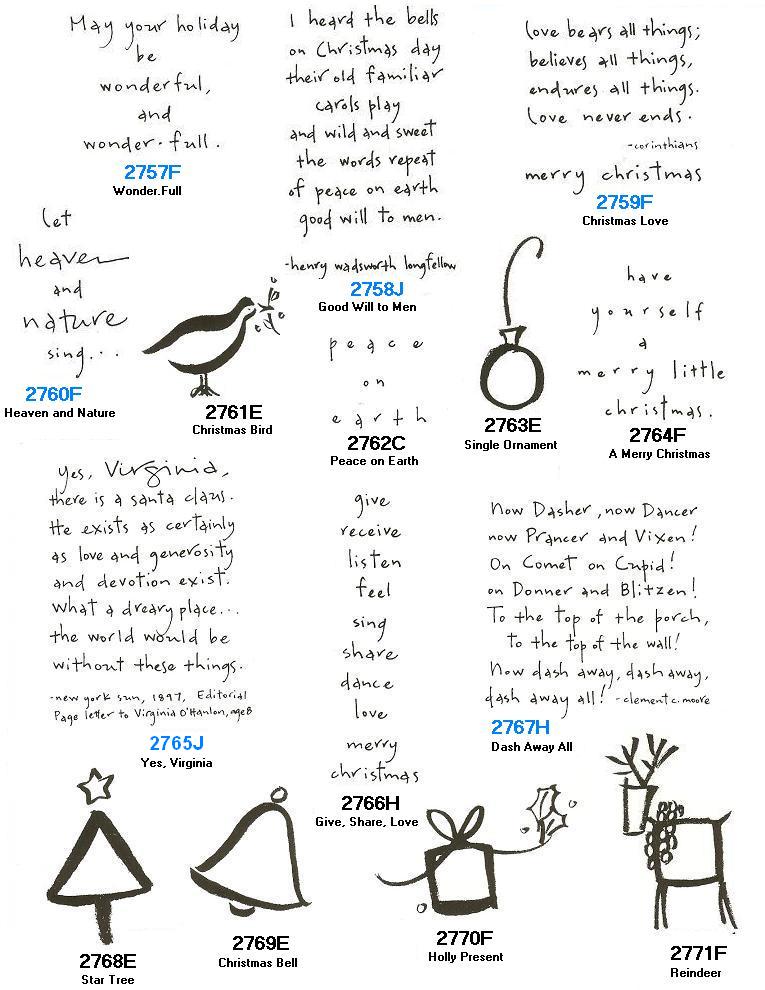 May your holiday
be
wonderful,
and
wonder.full.
2757F
Wonder.Full
I heard the bells
on Christmas day
their old familiar
carols play
and wild and sweet
the words repeat
of peace on earth
good will to men.
-henry wadsworth longfellow
2758J
Good Will to Men
love bears all things;
believes all things,
endures all things.
love never ends.
-corinthians
merry christmas
2759F
Christmas Love
let
heaven
and
nature
sing...
2760F
Heaven and Nature
2761E
Christmas Bird
peace
on
earth
2762C
Peace on Earth
2763E
Single Ornament
have
yourself
a
merry little
christmas.
2764F
A Merry Christmas
yes, Virginia,
there is a santa claus.
He exists as certainly
as love and generosity
and devotion exist.
What a dreary place...
the world would be
without these things.
-new york sun, 1897, Editorial
Page letter to Virginia O'Hanlon, age 8
2765J
Yes, Virginia
give
receive
listen
feel
sing
share
dance
love
merry
christmas
2766H
Give, Share, Love
Now Dasher, now Dancer
now Prancer and Vixen!
On Comet on Cupid!
on Donner and Blitzen!
To the top of the porch,
to the top of the wall!
Now dash away, dash away,
dash away all! -clement c. moore
2767H
Dash Away All
2768E
Star Tree
2769E
Christmas Bell
2770F
Holly Present
2771F
Reindeer